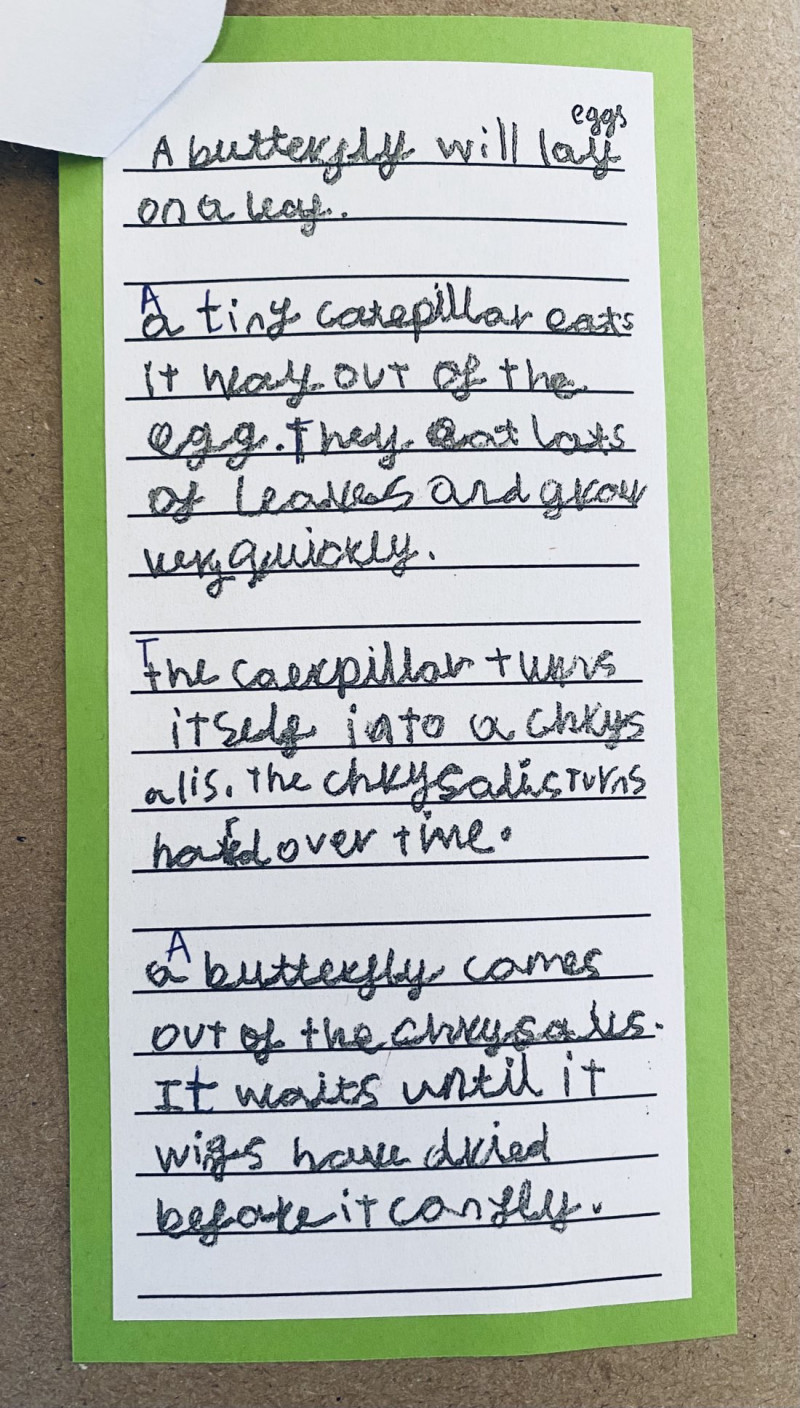 eggs
A butterfly will lay
on a leaf.
A tiny catepillar eats
it way out of the
egg. They eat lots
of leaves and grow
very quickly.
The caerpillar turns
itself into a chrys
alis. the chrysalis turns
hard over time.
A butterfly comes
out of the chrysalis.
It waits until it
wigs have dried
before it can fly.